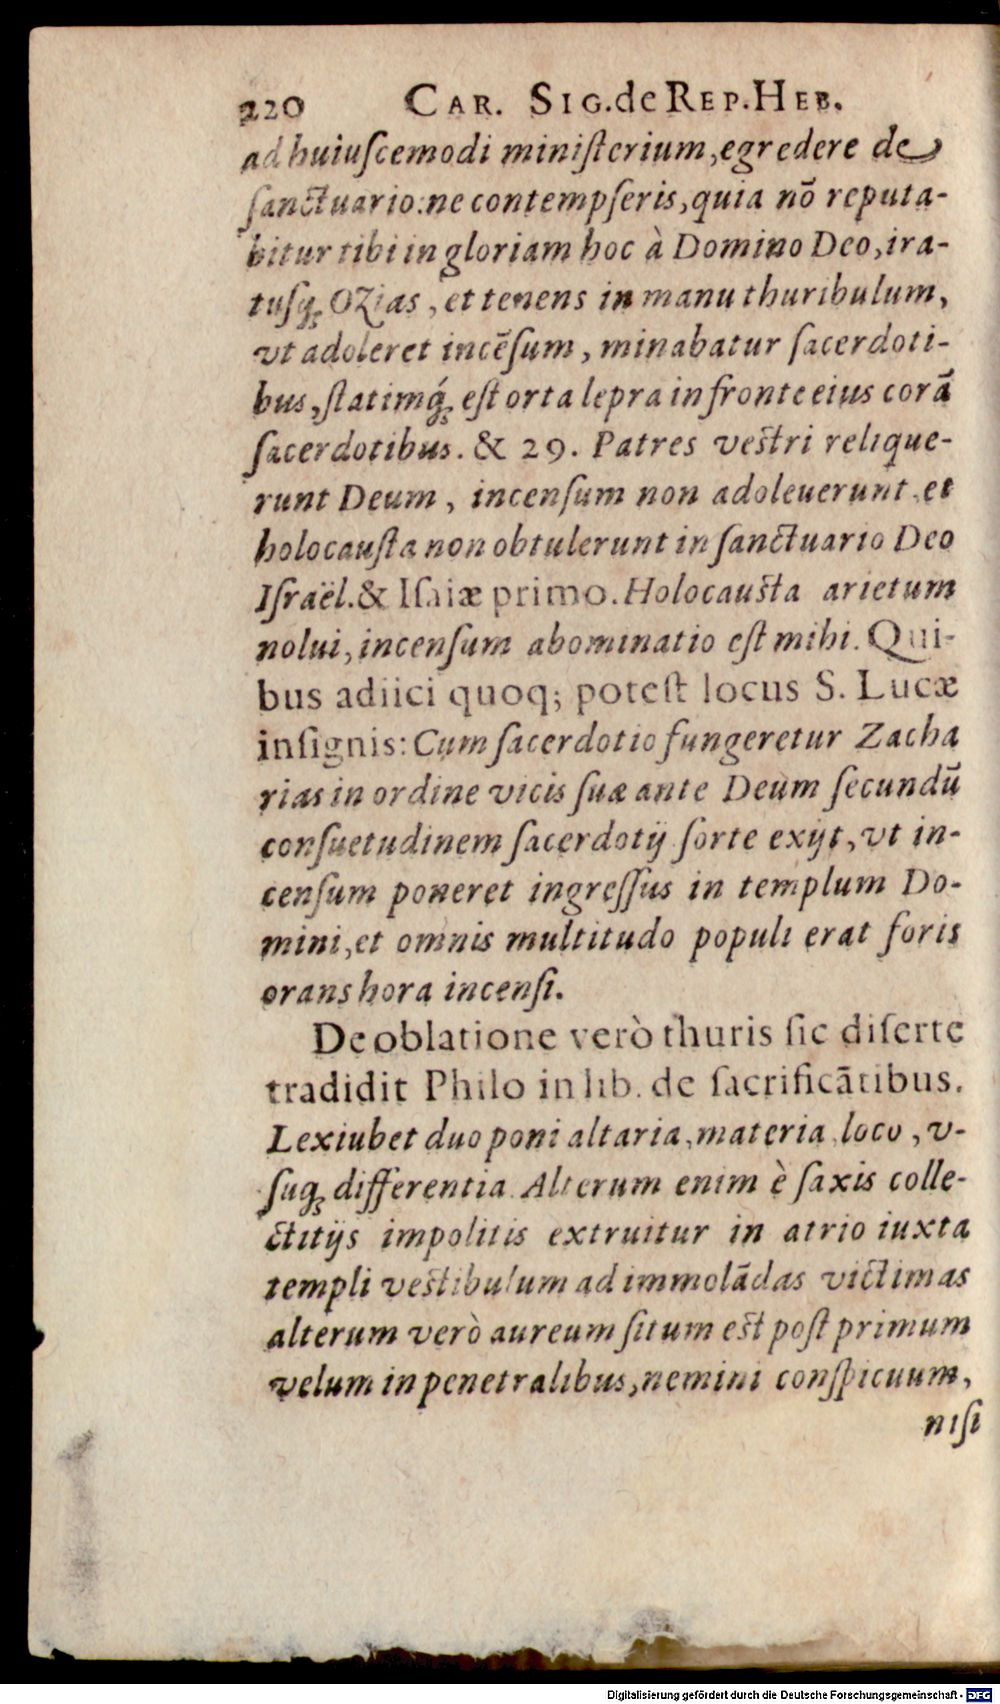 220 CAR. SIG. de REP. HEB.
ad huiuſcemodi miniſterium, egredere de
ſanctuario: ne contempſeris, quia nõ reputa-
bitur tibi in gloriam hoc à Domino Deo, ira-
tuſq; Ozias, et tenens in manu thuribulum,
vt adoleret incẽſum, minabatur ſacerdoti-
bus, ſtatimq́; eſt orta lepra in fronte eius corã
ſacerdotibus. & 29. Patres veſtri relique-
runt Deum, incenſum non adoleuerunt, et
holocauſta non obtulerunt in ſanctuario Deo
Iſraël. & Iſaiæ primo. Holocauſta arietum
nolui, incenſum abominatio eſt mihi. Qui-
bus adiici quoq; poteſt locus S. Lucæ
inſignis: Cum ſacerdotio fungeretur Zacha
rias in ordine vicis ſuæ ante Deum ſecundũ
conſuetudinem ſacerdotij ſorte exijt, vt in-
cenſum poneret ingreſſus in templum Do-
mini, et omnis multitudo populi erat foris
orans hora incenſi.
De oblatione verò thuris ſic diſerte
tradidit Philo in lib. de ſacrificãtibus.
Lex iubet duo poni altaria, materia, loco, v-
ſuq; differentia. Alterum enim è ſaxis colle-
ctitijs impolitis extruitur in atrio iuxta
templi veſtibulum ad immolãdas victimas
alterum verò aureum ſitum eſt poſt primum
velum in penetralibus, nemini conſpicuum,
niſi
Digitalisierung gefördert durch die Deutsche Forschungsgemeinschaft - DFG